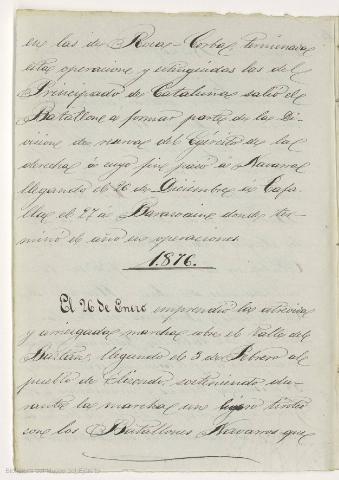 en las de Roca-Corba. Terminadas
estas operaciones y extinguidas las del
Principado de Cataluña salió el
Batallon a formar parte de la Di-
vision de reserva del Ejército de la
derecha á cuyo fin pasó á Navarra
llegando el 26 de Diciembre á Tafa-
lla el 27 á Barasoain donde ter-
minó el año en operaciones.
1.876.
El 26 de Enero emprendió la atrevida
y arriesgada marcha sobre el Valle del
Baztan, llegando el 5 de Febrero al
pueblo de Elizondo, sosteniendo du-
rante la marcha un ligero tiroteo
con los Batallones Navarros que